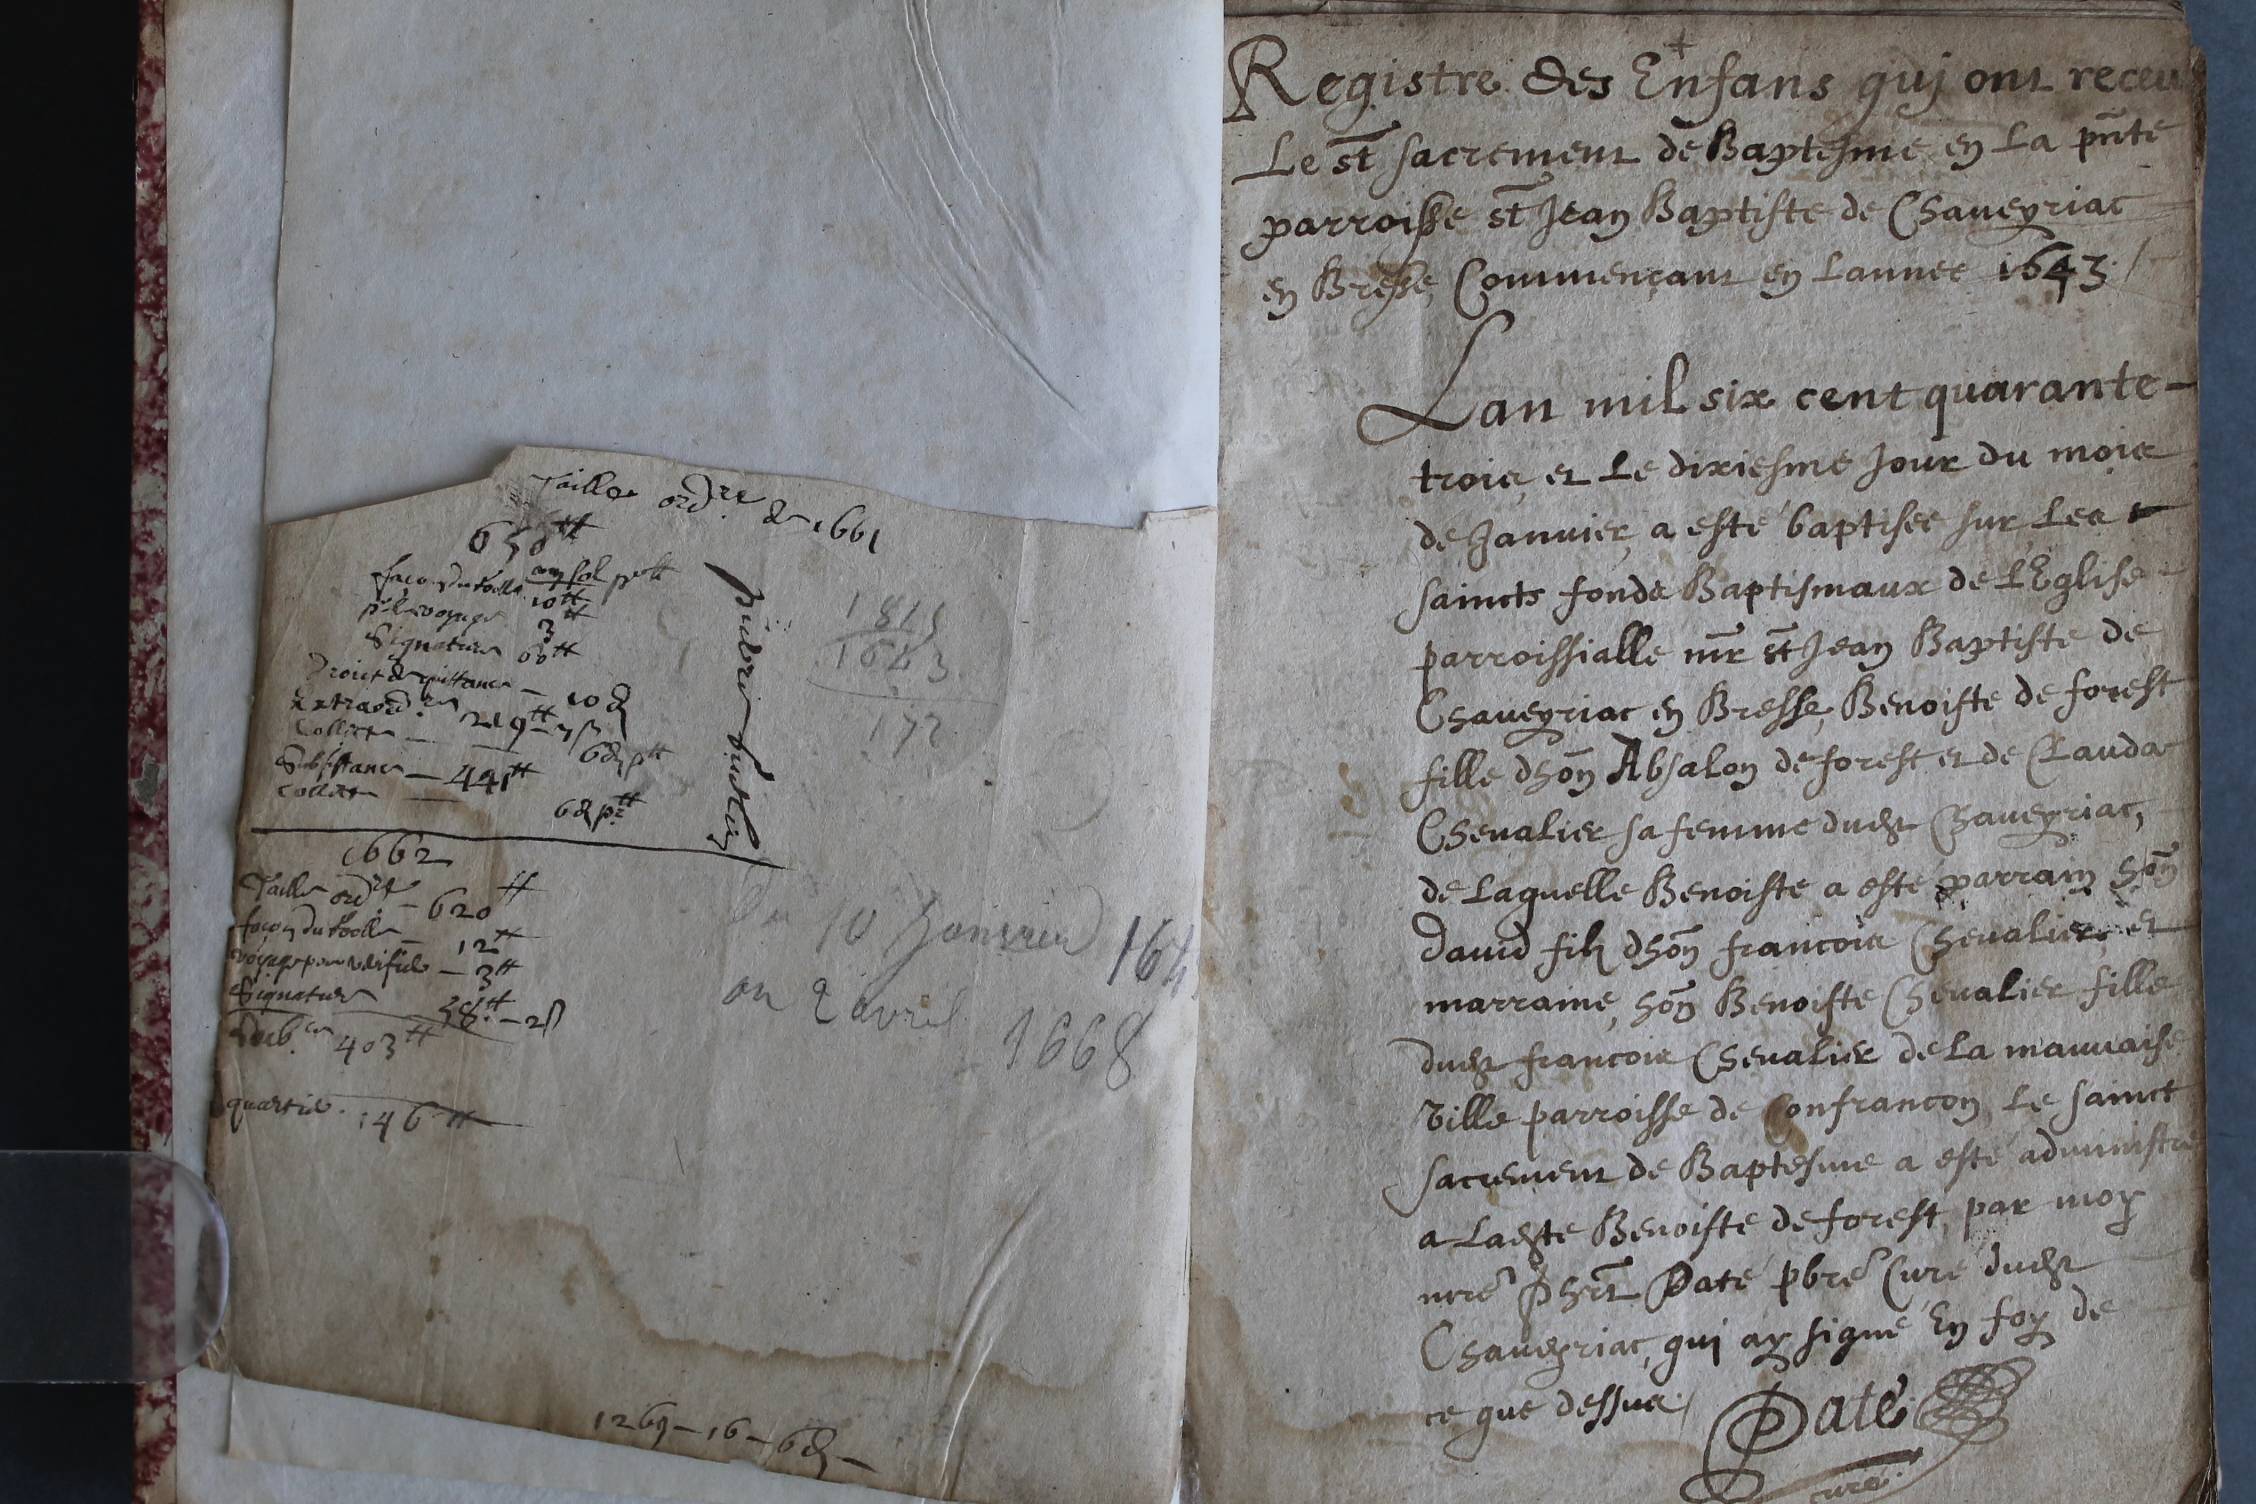 Taille ord.re de 1661
650tt
façon du roolle 10tt
3tt
Signature 60tt
Droict de quittance — 10 d
Extraord.res 219tt — 7 s
Collecte — 6 d ptt
Subsistance — 441tt
Collecte — 6 d pr tt
1662
Taille ord.re — 620tt
façon du roolle — 12tt
— 3tt
Signature 58tt — 2 s
403tt
quartier 146tt
1269 — 16 — 6 d —
1815
1643
172
Du 10 Janvier 164
au 2 avril 1668
Registre des Enfans quj ont receu
Le st sacrement de Baptesme en La pnte
parroisse st Jean Baptiste de Chaveyriac
en Bresse, Commençant en Lannee 1643 /
Lan mil six cent quarante-
trois, et Le dixiesme Jour du mois
de Janvier, a esté baptisee sur Les
saincts fonds Baptismaux de L'Eglise
parroissialle mr st Jean Baptiste de
Chaveyriac en Bresse, Benoiste de forest
fille dhon Absalon de forest et de Clauda
Chevalier sa femme dudt Chaveyriac,
de Laquelle Benoiste a esté parrain hon
david filz dhon francois Chevalier, et
marraine, hon Benoiste Chevalier fille
dudt francois Chevalier de La mauvaise
Ville parroisse de Confrancon, Le sainct
sacrement de Baptesme a esté administré
a Ladte Benoiste de forest, par moy
mre Phrt Daté pbre Curé dudt
Chaveyriac, qui ay signé En foy de
ce que dessus /
Daté
curé